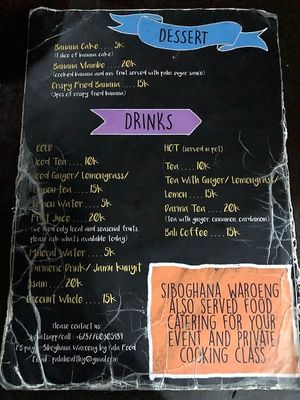 DESSERT
Banana Cake .... 5k
(1 slice of banana cake)
Banana Vlambe .... 20k
(cooked banana and mix fruit served with palm sugar sauce)
Crispy Fried Banana .... 15k
(3pcs of crispy fried banana)
DRINKS
COLD
Iced Tea .... 10k
Iced Ginger/ Lemongrass/
Lemon tea .... 15k
Lemon Water .... 5k
Fruit Juice .... 20k
(we used only local and seasonal fruits,
please ask whats available today)
Mineral Water .... 5k
Turmeric Drink/ Jamu Kunyit
Asam .... 20k
Coconut Whole .... 15k
HOT (served in pot)
Tea .... 10k
Tea With Ginger/ Lemongrass/
Lemon .... 15k
Darma Tea .... 20k
(tea with ginger, cinnamon, cardamom)
Bali Coffee .... 15k
SIBOGHANA WAROENG
ALSO SERVED FOOD
CATERING FOR YOUR
EVENT AND PRIVATE
COOKING CLASS
Please contact us:
Whatsapp/call :
page : Siboghana Waroeng by Pala Food
Email :